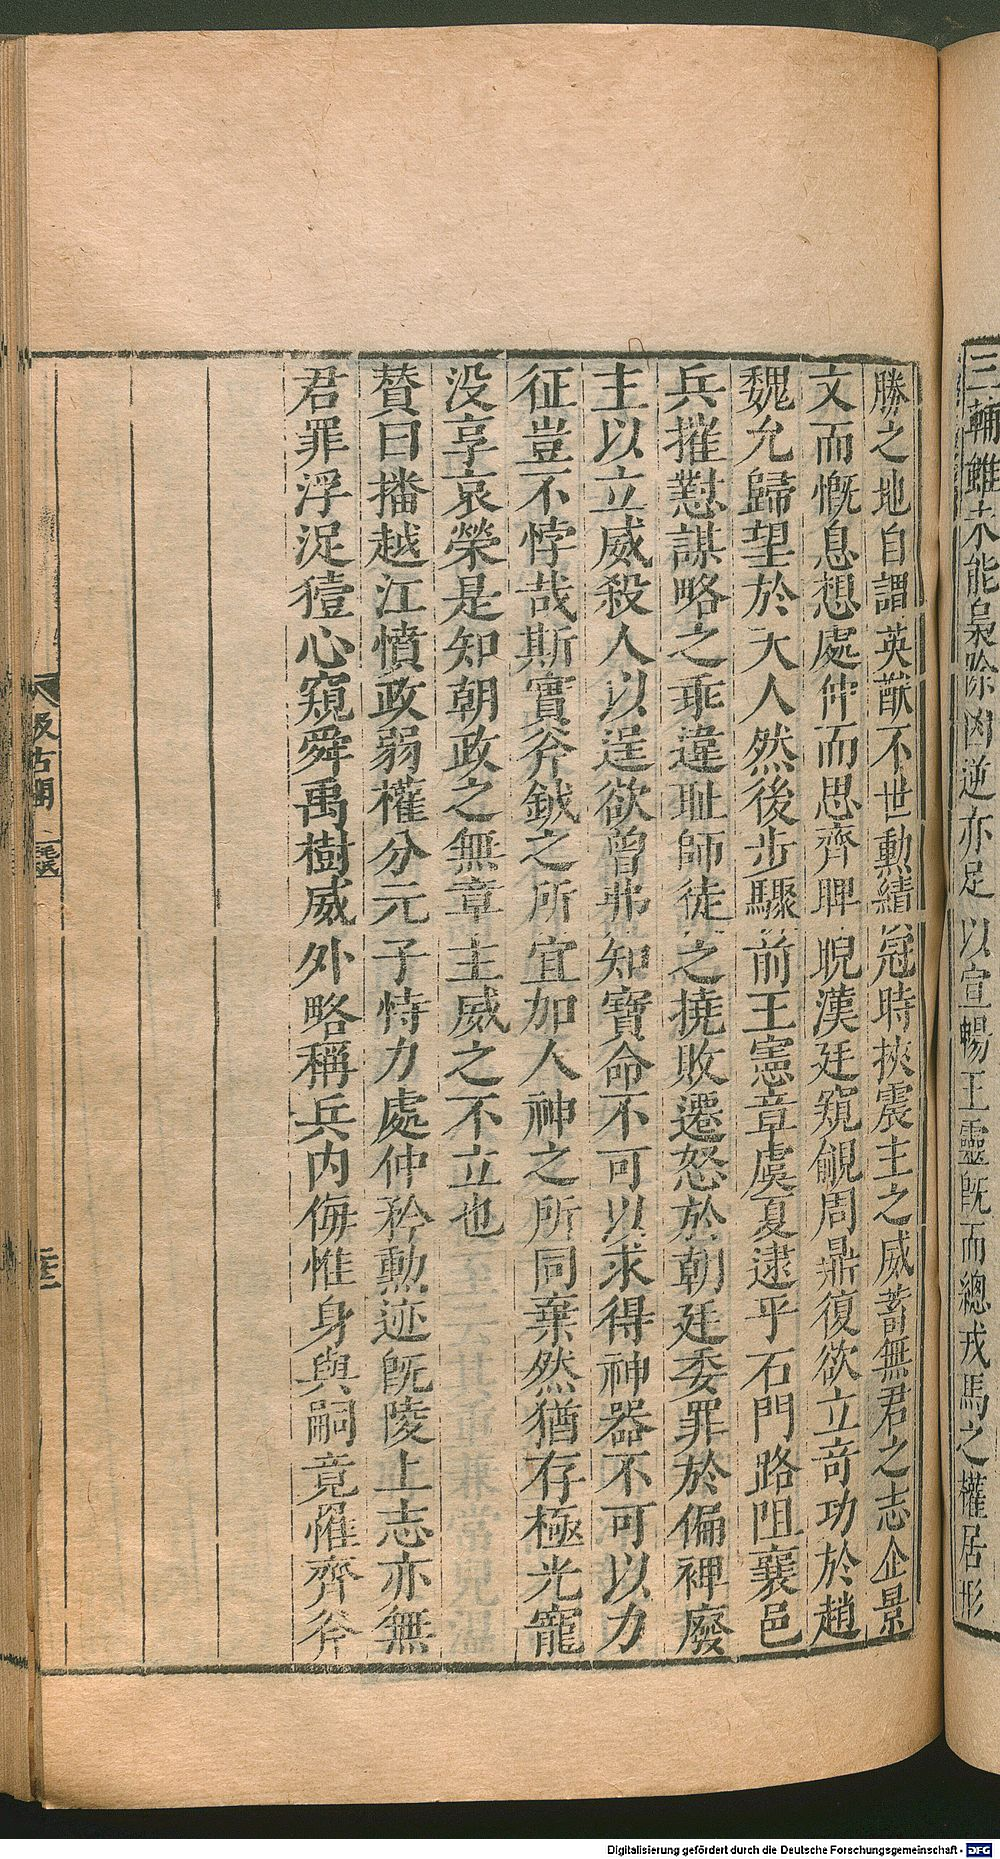 三輔雖未能梟除凶逆亦足以宣暢王靈旣而總戎馬之權居形
勝之地自謂英猷不世勳績冠時挾震主之威蓄無君之志企景
文而慨息想處仲而思齊睥睨漢廷窺覦周鼎復欲立奇功於趙
魏允歸望於天人然後步驟前王憲章虞夏逮乎石門路阻襄邑
兵摧懟謀略之乖違恥師徒之撓敗遷怒於朝廷委罪於偏裨廢
主以立威殺人以逞欲曾弗知寶命不可以求得神器不可以力
征豈不悖哉斯實斧鉞之所宜加人神之所同棄然猶存極光寵
没享哀榮是知朝政之無章主威之不立也
賛曰播越江濆政弱權分元子恃力處仲矜勳迹旣陵上志亦無
君罪浮浞豷心窺舜禹樹威外略稱兵内侮惟身與嗣竟罹齊斧
汲古閣
Digitalisierung gefördert durch die Deutsche Forschungsgemeinschaft - DFG